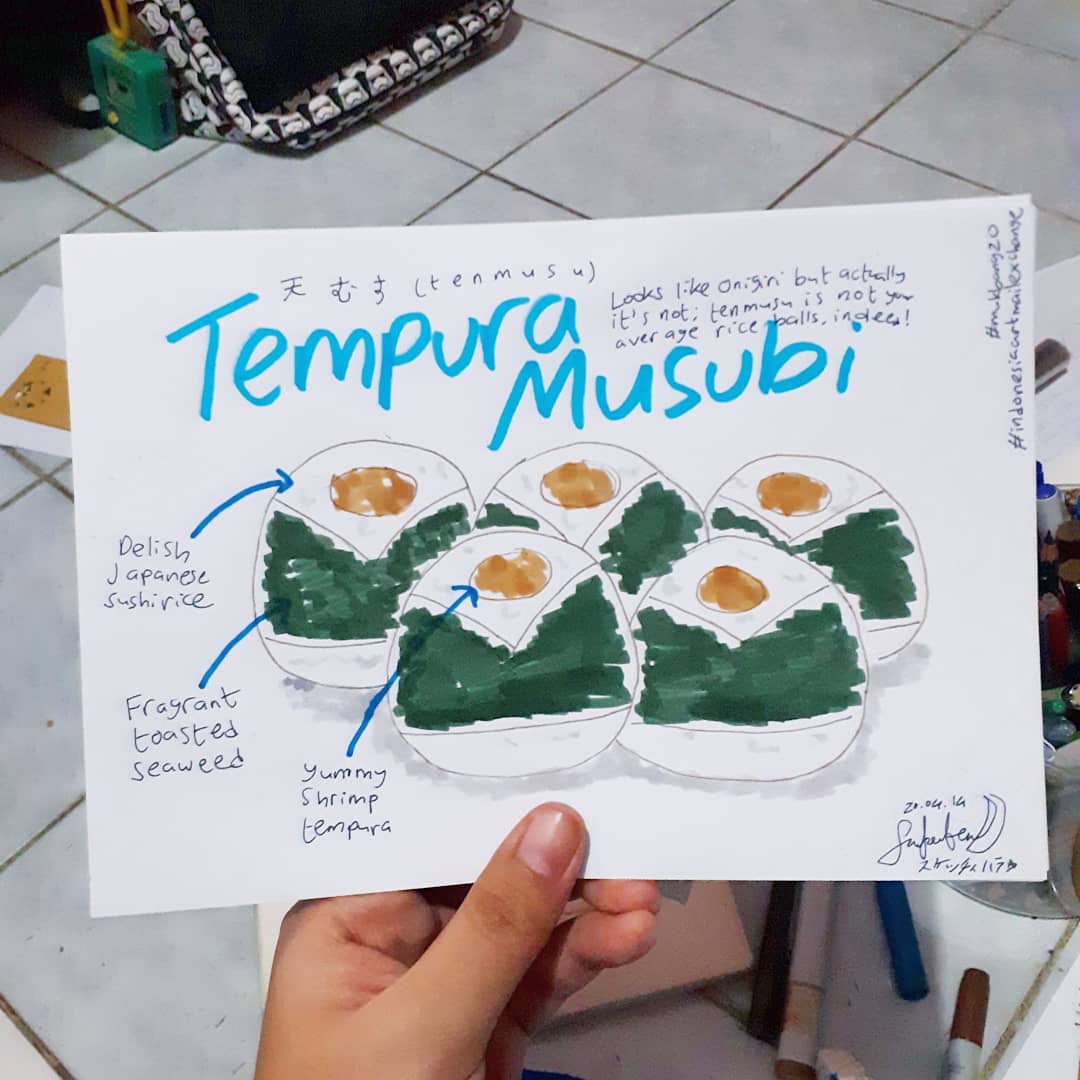 天むす (tenmusu)
Tempura
Musubi
Looks like Onigiri but actually
it's not; tenmusu is not your
average rice balls, indeed!
#mukbang20
#indonesiaartmailexchange
Delish
Japanese
sushi rice
Fragrant
toasted
seaweed
Yummy
Shrimp
tempura
20.04.19